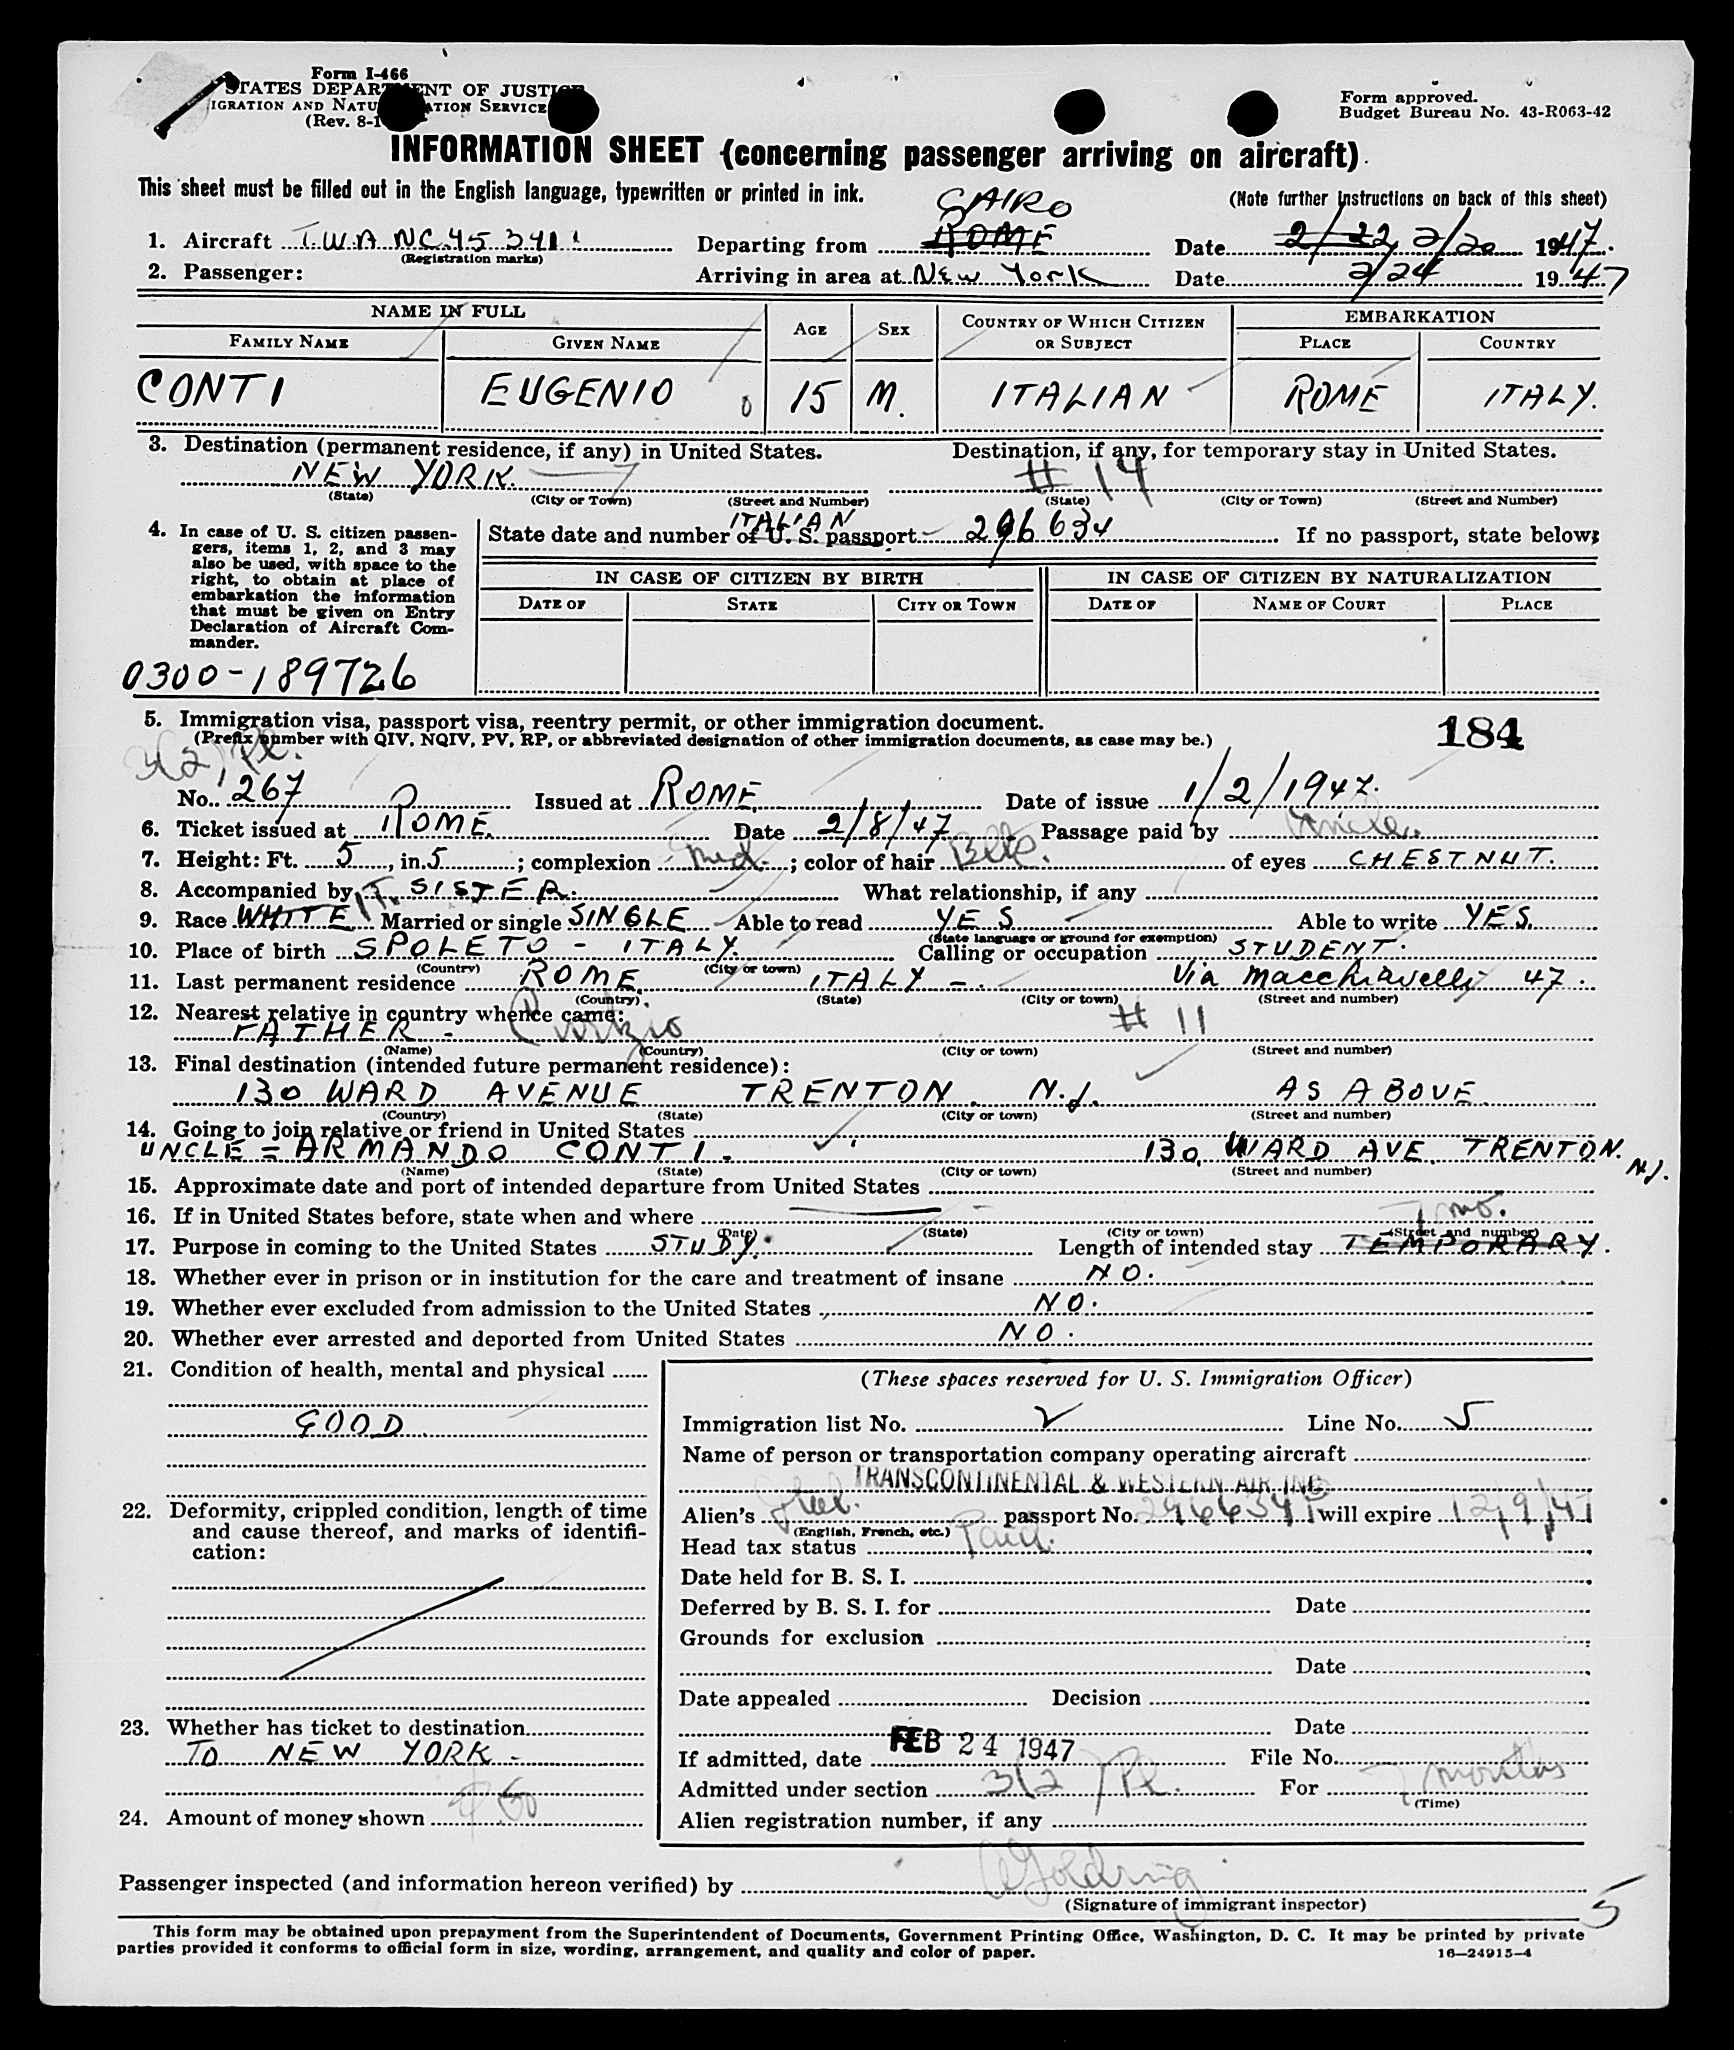 Form I-466
STATES DEPARTMENT OF JUSTICE
IGRATION AND NATURALIZATION SERVICE
(Rev. 8-1
Form approved.
Budget Bureau No. 43-R063-42
INFORMATION SHEET (concerning passenger arriving on aircraft)
This sheet must be filled out in the English language, typewritten or printed in ink.
(Note further instructions on back of this sheet)
CAIRO
1. Aircraft T.W.A NC 45 341 Departing from ROME Date 2/22 2/20 1947.
(Registration marks)
2. Passenger: Arriving in area at New York Date 2/24 1947
NAME IN FULL AGE SEX COUNTRY OF WHICH CITIZEN OR SUBJECT EMBARKATION
FAMILY NAME GIVEN NAME PLACE COUNTRY
CONTI EUGENIO 0 15 M. ITALIAN ROME ITALY.
3. Destination (permanent residence, if any) in United States. Destination, if any, for temporary stay in United States.
NEW YORK. # 14
(State) (City or Town) (Street and Number) (State) (City or Town) (Street and Number)
4. In case of U. S. citizen passengers, items 1, 2, and 3 may also be used, with space to the right, to obtain at place of embarkation the information that must be given on Entry Declaration of Aircraft Commander.
ITALIAN
State date and number of U. S. passport 296634 If no passport, state below:
IN CASE OF CITIZEN BY BIRTH IN CASE OF CITIZEN BY NATURALIZATION
DATE OF STATE CITY OR TOWN DATE OF NAME OF COURT PLACE
0300-189726
5. Immigration visa, passport visa, reentry permit, or other immigration document. 184
(Prefix number with QIV, NQIV, PV, RP, or abbreviated designation of other immigration documents, as case may be.)
3(2) Pl.
No. 267 Issued at ROME Date of issue 1/2/1947.
6. Ticket issued at ROME. Date 2/8/47 Passage paid by Uncle.
7. Height: Ft. 5, in. 5; complexion med.; color of hair Blk. of eyes CHESTNUT.
8. Accompanied by SISTER. What relationship, if any
9. Race WHITE IT. Married or single SINGLE Able to read YES Able to write YES.
(State language or ground for exemption)
10. Place of birth SPOLETO - ITALY. Calling or occupation STUDENT.
(Country) (City or town)
11. Last permanent residence ROME. ITALY - Via Macchiavelli 47.
(Country) (State) (City or town) (Street and number)
12. Nearest relative in country whence came:
FATHER - # 11
(Name) (Country) (City or town) (Street and number)
13. Final destination (intended future permanent residence):
130 WARD AVENUE TRENTON. N.J. AS ABOVE.
(Country) (State) (City or town) (Street and number)
14. Going to join relative or friend in United States
UNCLE = ARMANDO CONTI. 130, WARD AVE. TRENTON. N.J.
(Name) (State) (City or town) (Street and number)
15. Approximate date and port of intended departure from United States
16. If in United States before, state when and where
7 mo.
(Date) (State) (City or town) (Street and number)
17. Purpose in coming to the United States STUDY. Length of intended stay TEMPORARY.
18. Whether ever in prison or in institution for the care and treatment of insane NO.
19. Whether ever excluded from admission to the United States NO.
20. Whether ever arrested and deported from United States NO.
21. Condition of health, mental and physical
GOOD
22. Deformity, crippled condition, length of time and cause thereof, and marks of identification:
23. Whether has ticket to destination
TO NEW YORK -
24. Amount of money shown $60
(These spaces reserved for U. S. Immigration Officer)
Immigration list No. 2 Line No. 5
Name of person or transportation company operating aircraft
TRANSCONTINENTAL & WESTERN AIR INC
Alien's Ital. passport No. 296634P will expire 12/9/47
(English, French, etc.)
Head tax status Paid.
Date held for B. S. I.
Deferred by B. S. I. for Date
Grounds for exclusion
Date
Date appealed Decision
Date
If admitted, date FEB 24 1947 File No.
Admitted under section 3(2) Pl. For 7 months
(Time)
Alien registration number, if any
Passenger inspected (and information hereon verified) by
(Signature of immigrant inspector)
5
This form may be obtained upon prepayment from the Superintendent of Documents, Government Printing Office, Washington, D. C. It may be printed by private
parties provided it conforms to official form in size, wording, arrangement, and quality and color of paper. 16—24915-4